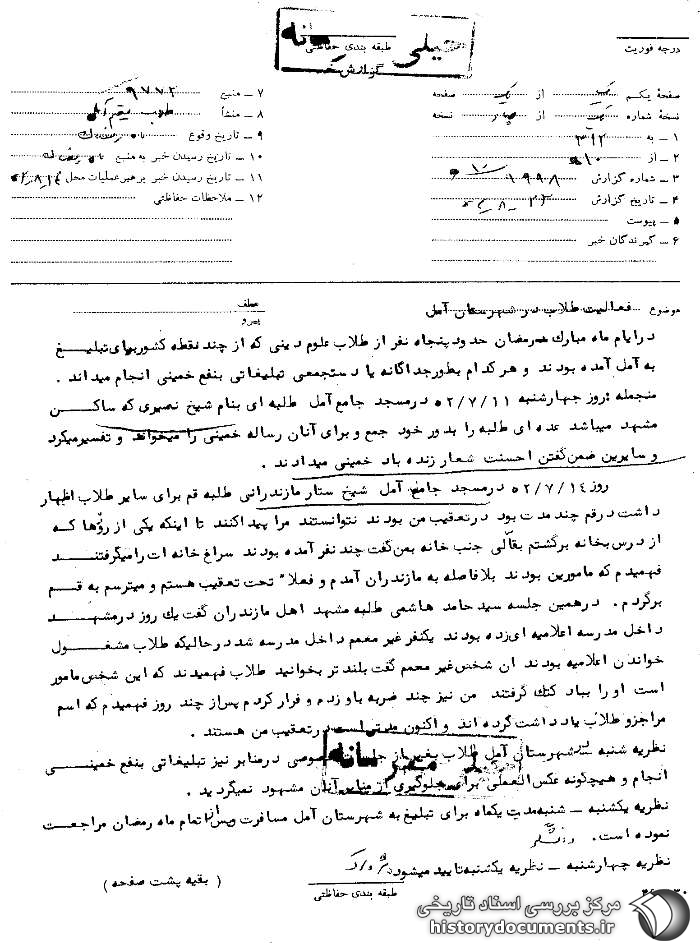 خیلی محرمانه
درجه فوریت
طبقه بندی حفاظتی
گزارش خبر
صفحهٔ یکم یک از یک صفحه
نسخهٔ شماره یک از چهار نسخه
۱ ــ به ۳۱۲
۲ ــ از ۱۰ه‍
۳ ــ شماره گزارش
۴ ــ تاریخ گزارش
۵ ــ پیوست
۶ ــ گیرندگان خبر
۷ ــ منبع ۹۷۷۲
۸ ــ منشأ طلاب مقیم آمل
۹ ــ تاریخ وقوع
۱۰ ــ تاریخ رسیدن خبر به منبع
۱۱ ــ تاریخ رسیدن خبر برهبر عملیات محل
۱۲ ــ ملاحظات حفاظتی
موضوع فعالیت طلاب در شهرستان آمل
عطف
پیرو
درایام ماه مبارک رمضان حدود پنجاه نفر از طلاب علوم دینی که از چند نقطه کشور برای تبلیغ
به آمل آمده بودند و هر کدام بطور جداگانه یا دستجمعی تبلیغاتی بنفع خمینی انجام میداند .
منجمله :روز چهارشنبه ۵۲/۷/۱۱ در مسجد جامع آمل طلبه ای بنام شیخ نصیری که ساکن
مشهد میباشد عده ای طلبه را بدور خود جمع و برای آنان رساله خمینی را میخواند و تفسیر میکرد
و سایرین ضمن گفتن احسنت شعار زنده باد خمینی میدادند .
روز ۵۲/۷/۱۴ در مسجد جامع آمل شیخ ستار مازندرانی طلبه قم برای سایر طلاب اظهار
داشت در قم چند مدت بود در تعقیب من بودند نتوانستند مرا پیدا کنند تا اینکه یکی از روزها که
از درس بخانه برگشتم بقالی جنب خانه بمن گفت چند نفر آمده بودند سراغ خانه ات را میگرفتند
فهمیدم که مامورین بودند بلافاصله به مازندران آمدم و فعلا" تحت تعقیب هستم و میترسم به قم
برگردم . در همین جلسه سید حامد هاشمی طلبه مشهد اهل مازندران گفت یک روز در مشهد
داخل مدرسه اعلامیه ای زده بودند یکنفر غیر معمم داخل مدرسه شد در حالیکه طلاب مشغول
خواندن اعلامیه بودند ان شخص غیر معمم گفت بلند تر بخوانید طلاب فهمیدند که این شخص مامور
است او را بباد کتک گرفتند من نیز چند ضربه باو زدم و فرار کردم پس از چند روز فهمیدم که اسم
مرا جزو طلاب یادداشت کرده اند و اکنون مدتی است در تعقیب من هستند .
نظریه شنبه در شهرستان آمل طلاب بغیر از جلسات خصوصی در منابر نیز تبلیغاتی بنفع خمینی
انجام و هیچگونه عکس العملی برای جلوگیری از منابر آنان مشهود نمیگردید .
نظریه یکشنبه ــ شنبه مدت یکماه برای تبلیغ به شهرستان آمل مسافرت و پس از اتمام ماه رمضان مراجعت
نموده است .
نظریه چهارشنبه ــ نظریه یکشنبه تایید میشود
خیلی محرمانه
( بقیه پشت صفحه )
طبقه بندی حفاظتی
مرکز بررسی اسناد تاریخی
historydocuments.ir